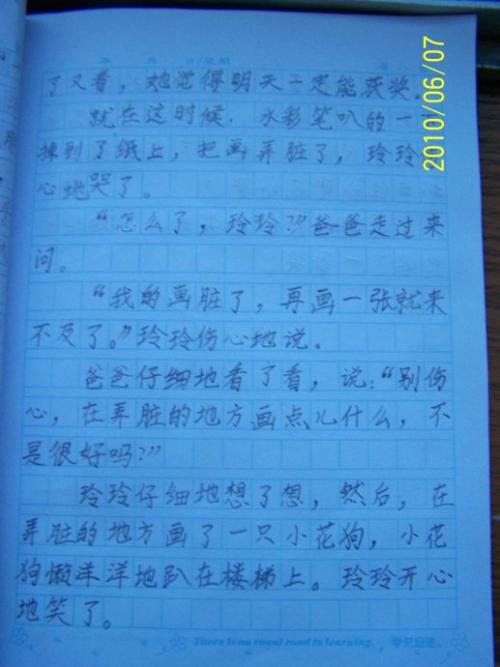 年 月 日/星期
2010/06/07
了又看，她觉得明天一定能获奖。
就在这时候，水彩笔叭的一
掉到了纸上，把画弄脏了，玲玲
心地哭了。
“怎么了，玲玲？”爸爸走过来
问。
“我的画脏了，再画一张就来
不及了。”玲玲伤心地说。
爸爸仔细地看了看，说：“别伤
心，在弄脏的地方画点儿什么，不
是很好吗？”
玲玲仔细地想了想，然后，在
弄脏的地方画了一只小花狗，小花
狗懒洋洋地趴在楼梯上。玲玲开心
地笑了。
There is no royal road to learning.